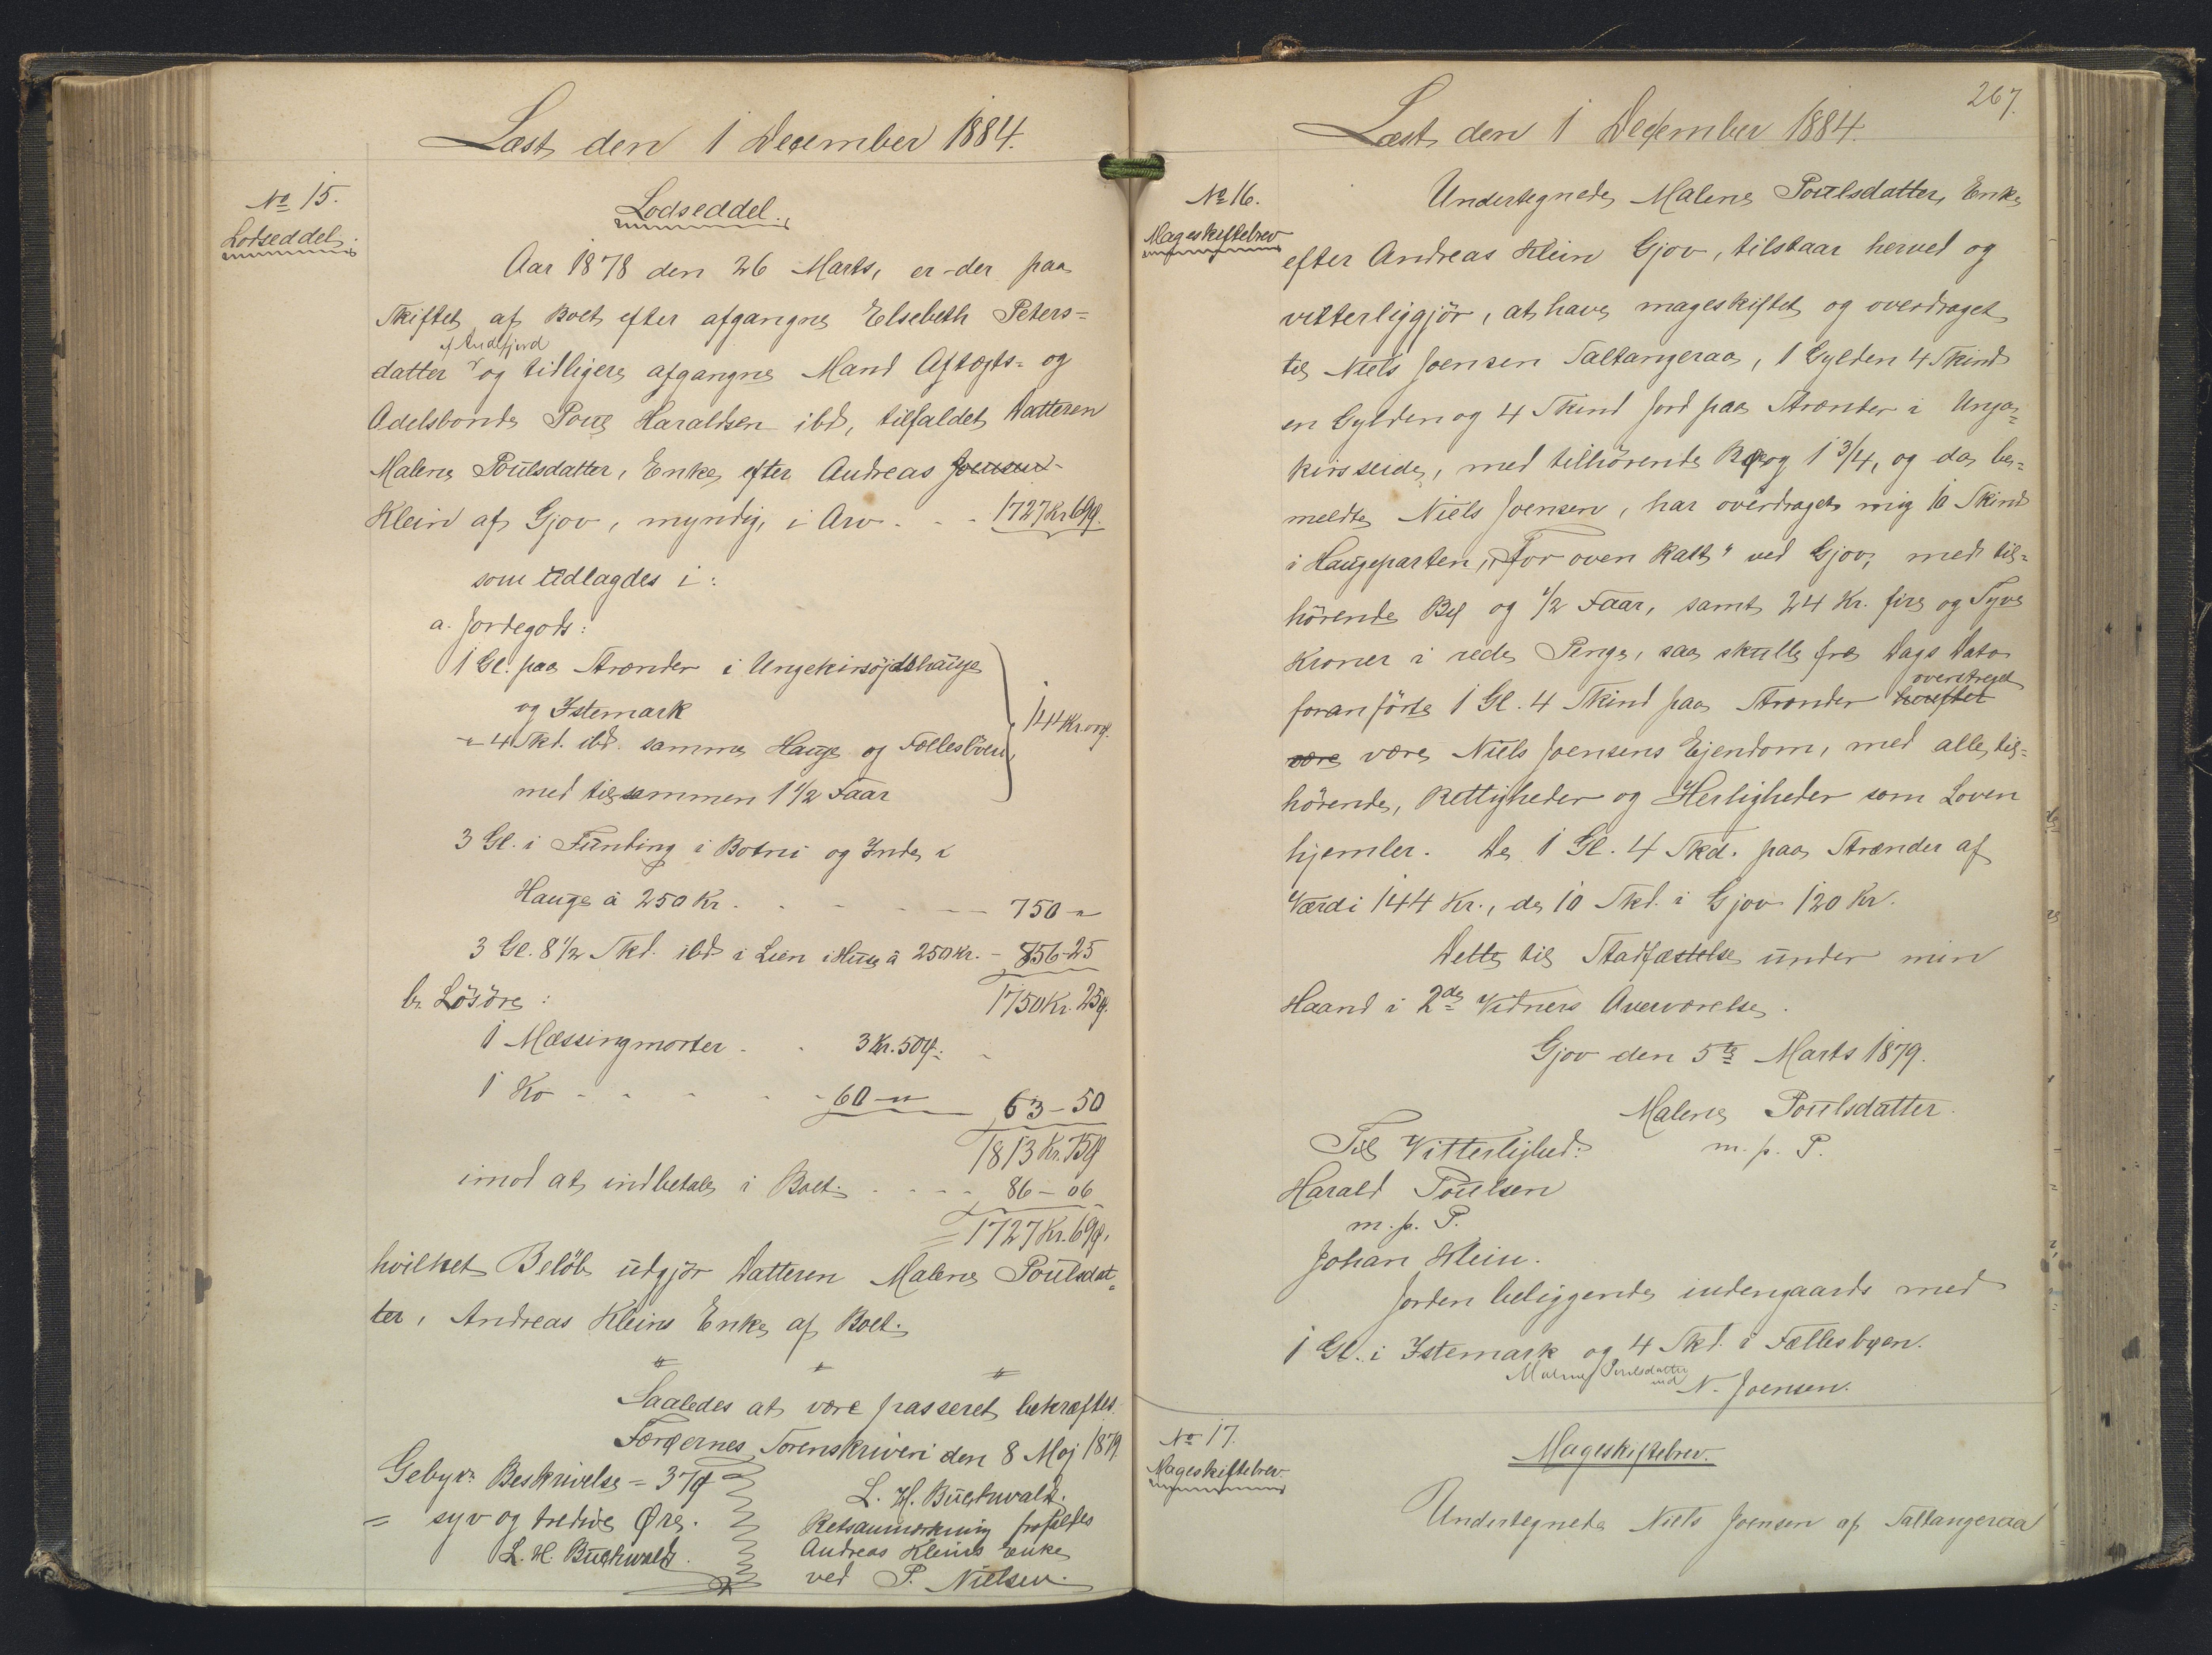 Læst den 1 December 1884.
No 15.
Lodseddel.
Lodseddel.
Aar 1878 den 26 Marts, er der paa
Skiftet af Boet efter afgangne Elsebeth Peters=
af Andefjord
datter og tidligere afgangne Mand Aftægts= og
Odelsbonde Poul Haraldsen ibd, tilfaldet Datteren
Malene Poulsdatter, Enke efter Andreas Joensen
Klein af Gjov, myndig, i Arv . . . 1727 Kr 69 Ø.
som udlagdes i:
a. Jordegods:
1 Gl. paa Strænder i Ungekirsøjdshauge
og Istemark
" 4 Skd. ibd. samme Hauge og Fællesbøen,
144 Kr. 0 Ø.
med tilsammen 1 1/2 Faar
3 Gl. i Funding i Botni og Inde i
Hauge à 250 Kr. . . - - - 750 "
3 Gl. 8 1/2 Skd. ibd i Lien i Huse à 250 Kr. - 856-25
b. Løsøre: 1750 Kr. 25 Ø.
1 Messingmorter . . 3 Kr. 50 Ø.
1 Ko - - - - - 60 - " 63-50
1813 Kr. 75 Ø
imod at indbetale i Boet . . . . 86-06
= 1727 Kr. 69 Ø.
hvilket Beløb udgjør Datteren Malene Poulsdat=
ter, Andreas Kleins Enke af Boet.
Saaledes at være passeret bekræftes.
Færøernes Sorenskriveri den 8 Maj 1879
L. H. Buchwald.
Gebyr: Beskrivelse = 37 Ø
= syv og tredive Øre.
L. H. Buchwald.
Retsanmærkning frafaldes
Andreas Kleins Enke
ved P. Nielsen.
267.
Læst den 1 December 1884.
No 16.
Mageskiftebrev
Undertegnede Malene Poulsdatter, Enke
efter Andreas Klein Gjov, tilstaar herved og
vitterliggjør, at have mageskiftet og overdraget
til Niels Joensen Saltangeraa, 1 Gylden 4 Skind
en Gylden og 4 Skind Jord paa Strænder i Unga=
kirsseide, med tilhørende Bø og 1 3/4, og da be=
meldte Niels Joensen, har overdraget mig 10 Skind
i Haugeparten, "For oven Katt" ved Gjov, med til=
hørende Bø og 1/2 Faar, samt 24 Kr. fire og Tyve
Kroner i rede Penge, saa skulle fra Dags Dato
overstreget
foranførte 1 Gl. 4 Skind paa Strænder
være være Niels Joensens Ejendom, med alle til=
hørende, Rettigheder og Herligheder som Loven
hjemler. De 1 Gl. 4 Skd. paa Strænder af
Værdi 144 Kr., de 10 Skd. i Gjov 120 Kr.
Dette til Stadfæstelse under min
Haand i 2de Vidners Overværelse.
Gjov den 5te Marts 1879.
Malene Poulsdatter.
m. p. P.
Til Vitterlighed:
Harald Poulsen
m. p. P.
Johan Klein.
Jorden beliggende indengaards med
1 Gl. i Istemark og 4 Skd. i Fællesbøen.
Malene Poulsdatter
ved
N. Joensen.
No 17.
Mageskiftebrev.
Mageskiftebrev.
Undertegnede Niels Joensen af Saltangeraa